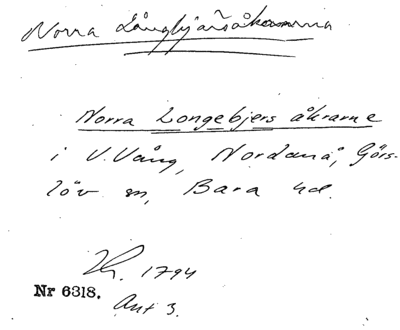 Norra Långbjärsåkrarna
Norra Longebjers åkrarne
i V. Vång, Nordanå, Görs-
löv sn, Bara hd.
1794
Nr 6318.
Akt 3.